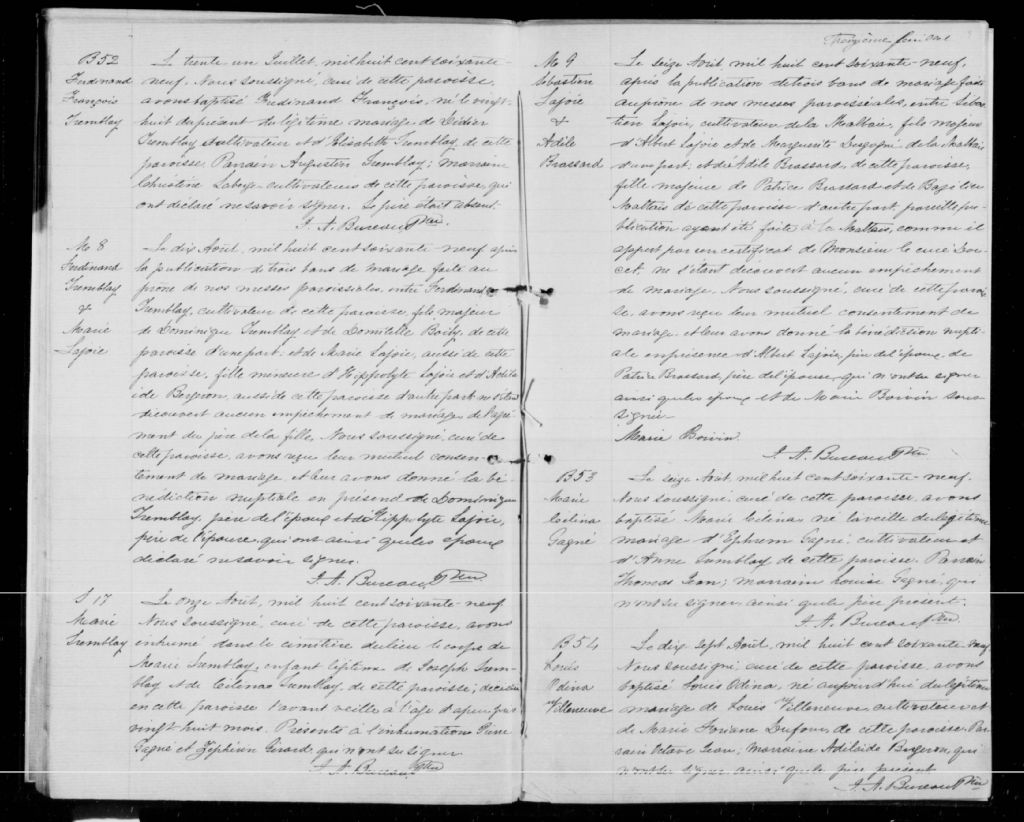 B 52
Ferdinand
François
Tremblay
Le trente un Juillet, mil huit cent soixante-
neuf. Nous soussigné, curé de cette paroisse,
avons baptisé Ferdinand François, né le vingt-
huit du présent du légitime mariage de Didier
Tremblay cultivateur et d'Elisabeth Tremblay, de cette
paroisse. Parrain Augustin Tremblay; marraine
Christine cultivateurs de cette paroisse, qui
ont déclaré ne savoir signer. Le père était absent.
J. A. Bureau Ptre
M 8
Ferdinand
Tremblay
&
Marie
Lajoie
Le dix Août, mil huit cent soixante-neuf après
la publication de trois bans de mariage faite au
prône de nos messes paroissiales, entre Ferdinand
Tremblay, cultivateur de cette paroisse, fils majeur
de Dominique Tremblay et de Domitille Boily de cette
paroisse d'une part, et de Marie Lajoie, aussi de cette
paroisse, fille mineure d'Hippolyte Lajoie et d'Adéla-
ïde Bergeron, aussi de cette paroisse d'autre part ne s'étant
découvert aucun empêchement de mariage, de l'agré-
ment du père de la fille, Nous soussigné, curé de
cette paroisse, avons reçu leur mutuel consen-
tement de mariage, et leur avons donné la bé-
nédiction nuptiale en présence de Dominique
Tremblay, père de l'époux et de Hippolyte Lajoie,
père de l'épouse, qui ont ainsi que les époux
déclaré ne savoir signer.
J. A. Bureau Ptre
S 17
Marie
Tremblay
Le onze Août, mil huit cent soixante-neuf
Nous soussigné, curé de cette paroisse, avons
inhumé dans le cimetière du lieu le corps de
Marie Tremblay, enfant légitime de Joseph Trem-
blay et de Célenas Tremblay, de cette paroisse; décédée
en cette paroisse l'avant veille à l'âge d'à peu près
vingt huit mois. Présents à l'inhumation Pierre
Gagné et Zéphirin Girard, qui n'ont su signer
J. A. Bureau Ptre
Treizième feuillet
M 9
Sébastien
Lajoie
&
Adèle
Brassard
Le seize Août, mil huit cent soixante-neuf,
après la publication de trois bans de mariage faite
au prône de nos messes paroissiales, entre Sébas-
tien Lajoie, cultivateur de la Malbaie, fils majeur
d'Albert Lajoie et de Marguerite de la Malbaie,
d'une part: et de Adèle Brassard, de cette paroisse,
fille majeure de Patrice Brassard et de Basilisse
Maltais de cette paroisse d'autre part, pareille pu-
blication ayant été faite à la Malbaie, comme il
appert par un certificat de Monsieur le curé Dou-
cet, ne s'étant découvert aucun empêchement
de mariage. Nous soussigné, curé de cette parois-
se, avons reçu leur mutuel consentement de
mariage et leur avons donné la bénédiction nupti-
ale en présence d'Albert Lajoie, père de l'époux, de
Patrice Brassard, père de l'épouse, qui n'ont su signer
ainsi que les époux et de Marie Boivin sous-
signée.
Marie Boivin.
J. A. Bureau Ptre
B 53
Marie
Célina
Gagné
Le seize Août, mil huit cent soixante-neuf.
Nous soussigné, curé de cette paroisse, avons
baptisé Marie Célina né la veille du légitime
mariage d'Ephrem Gagné, cultivateur et
d'Anne Tremblay de cette paroisse. Parrain
Thomas Jean; marraine Louise Gagné, qui
n'ont su signer ainsi que le père présent.
J. A. Bureau Ptre
B 54
Louis
Odina
Villeneuve
Le dix sept Août, mil huit cent soixante neuf
Nous soussigné, curé de cette paroisse, avons
baptisé Louis Odina, né aujourd'hui du légitime
mariage de Louis Villeneuve, cultivateur et
de Marie Dufour de cette paroisse. Par-
rain Octave Jean; Marraine Adélaïde Bergeron, qui
n'ont su signer ainsi que le père présent
J. A. Bureau Ptre